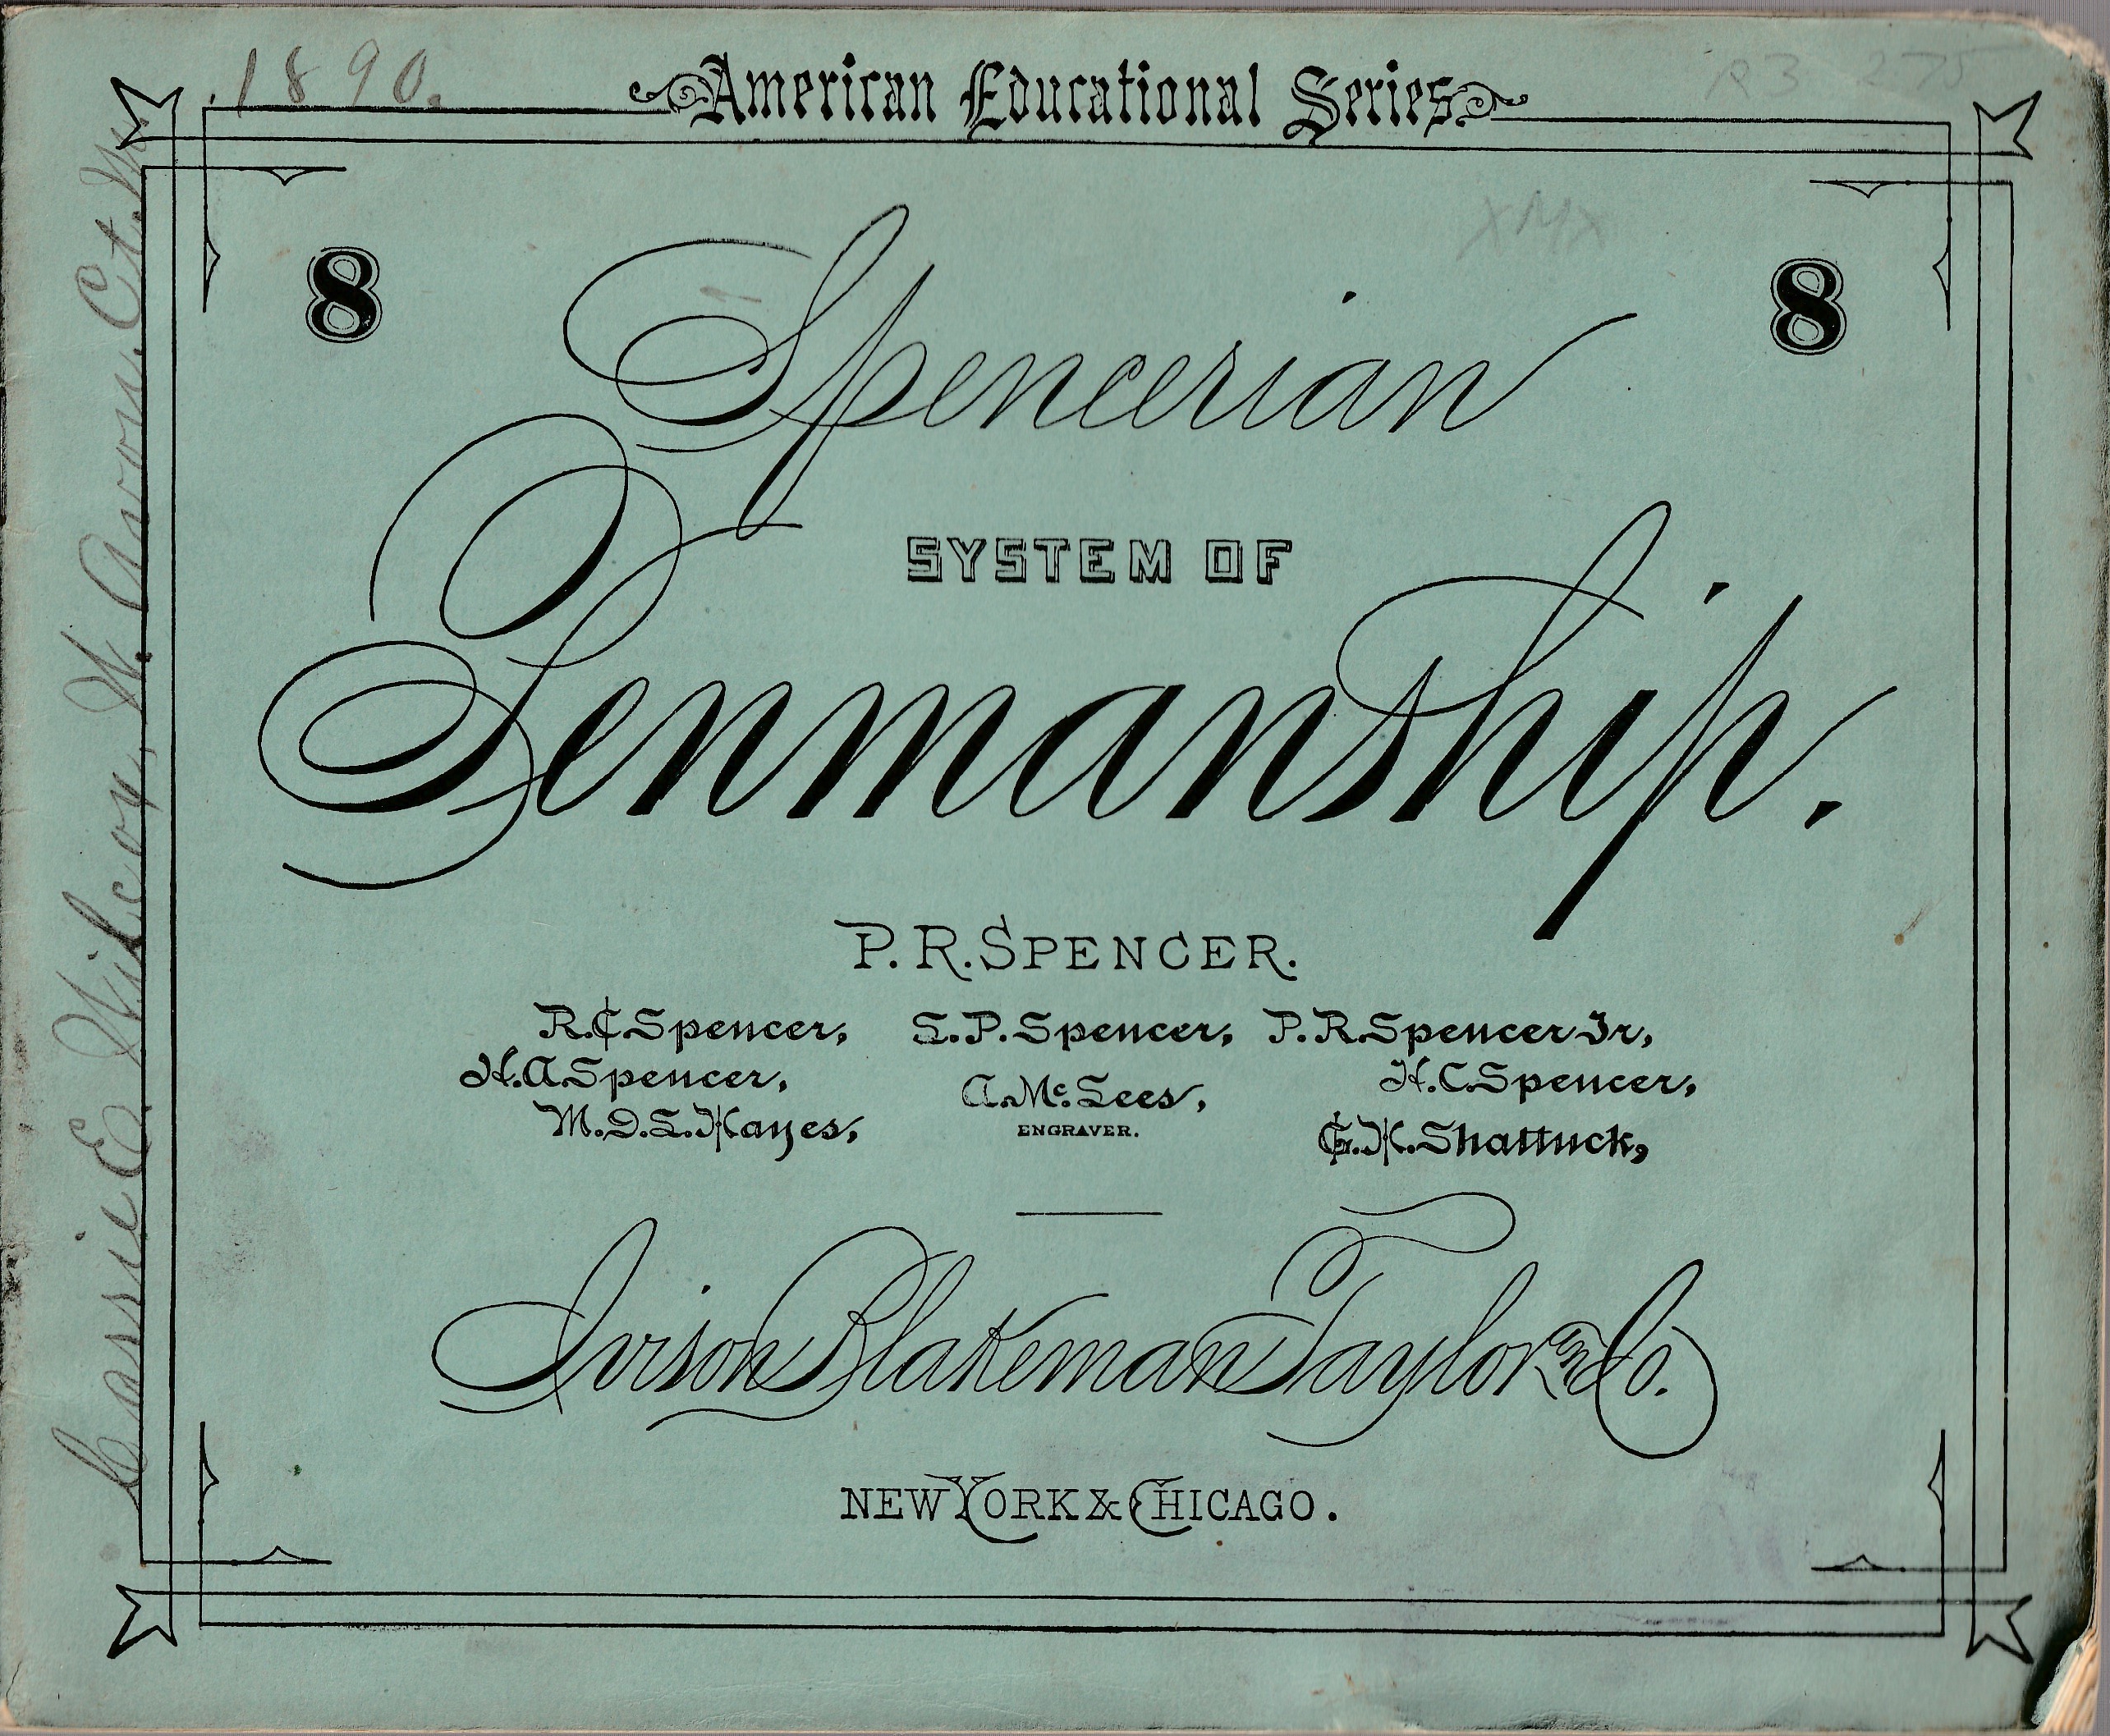 1890.
American Educational Series
8 8
Spencerian
SYSTEM OF
Penmanship.
P. R. SPENCER.
R. C. Spencer, L. P. Spencer, P. R. Spencer Jr,
H. A. Spencer, H. C. Spencer,
A. Mc. Lees,
ENGRAVER.
M. D. L. Hayes, G. H. Shattuck,
Ivison Blakeman Taylor & Co.
NEW YORK & CHICAGO.
Cassie E. Wilcox, W. Avon. Ct.